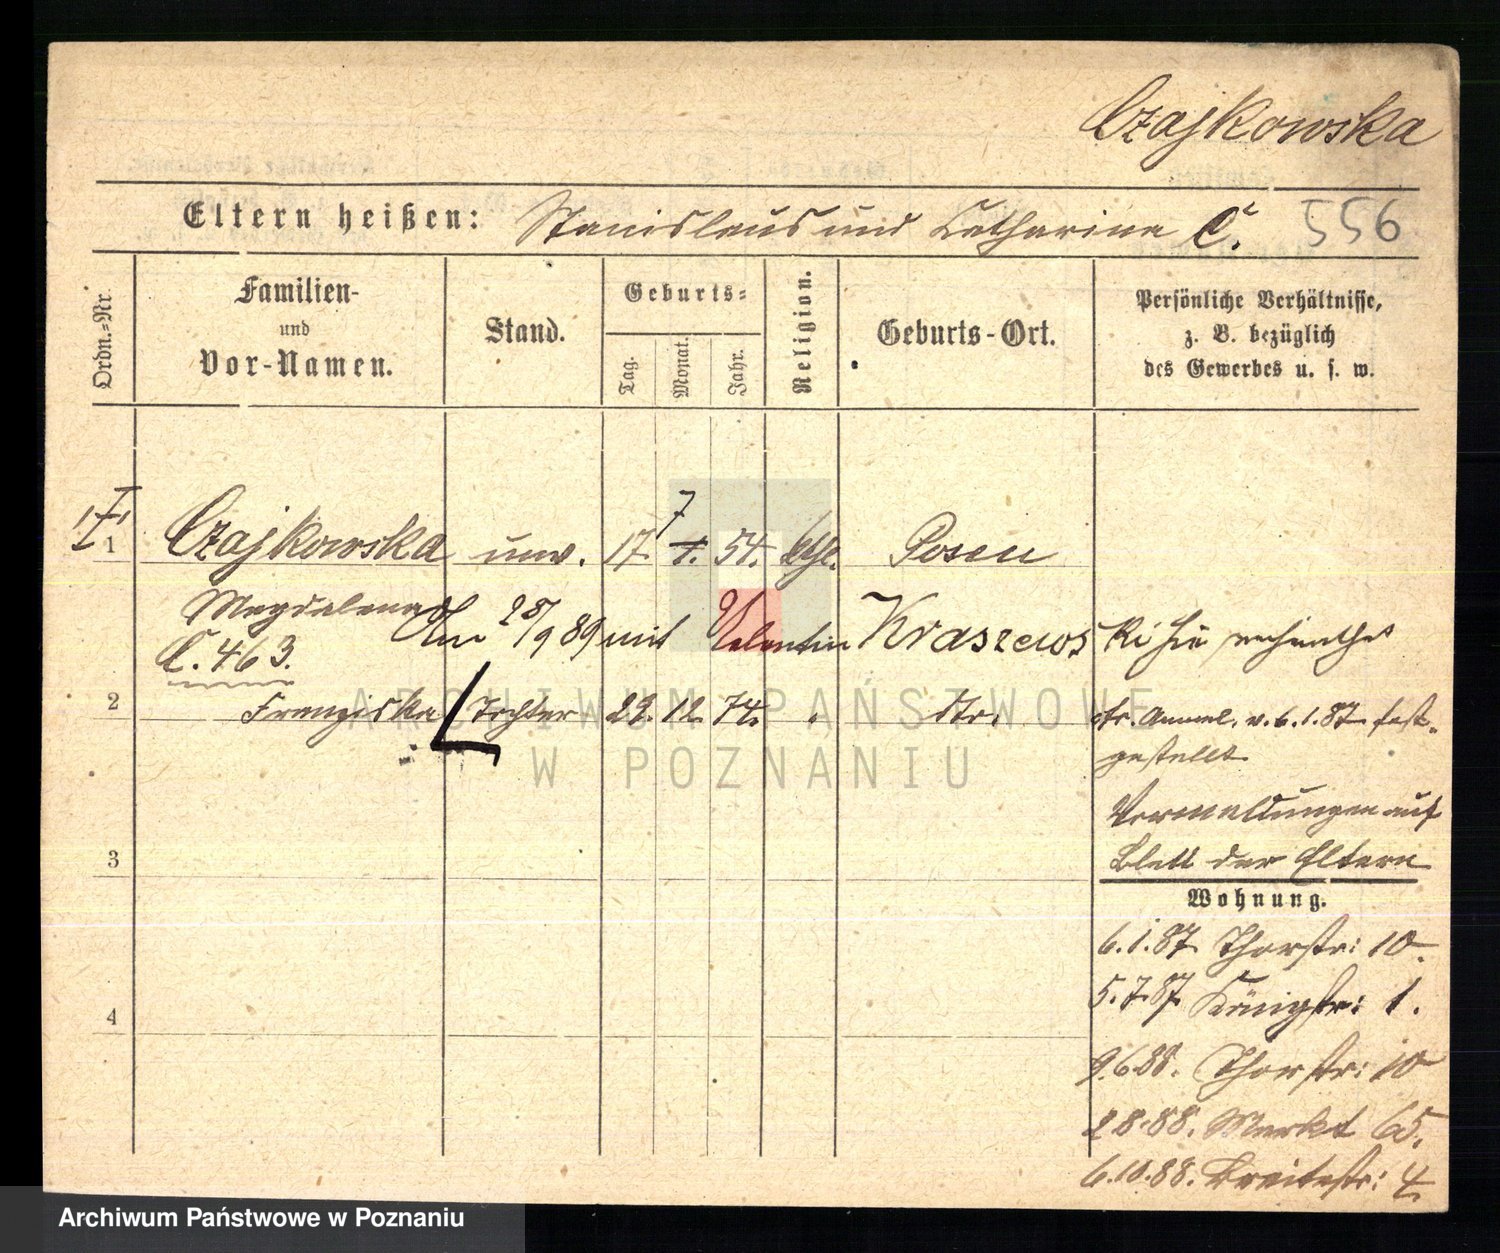 Czajkowska
Eltern heißen: Stanislaus und Catharina C. 556
Ordn.-Nr.
Familien-
und
Vor-Namen.
Stand.
Geburts-
Tag. Monat. Jahr.
Religion.
Geburts-Ort.
Persönliche Verhältnisse,
z. B. bezüglich
des Gewerbes u. s. w.
1 Czajkowska unv. 17. 7 54. kth. Posen
Magdalena
Am 28/9 89 mit Valentin Kraszewski hier verheirathet
C. 463.
2 Franziska Tochter 22. 12. 74. " dto.
ltr. Anmel. v. 6.1.87 fest-
gestellt
Vermeldungen auf
Blatt der Eltern
3
4
Wohnung.
6.1.87 Thorstr: 10.
5.7.87 Königstr: 1.
9.6.88. Thorstr: 10
2.8.88. Markt 65.
6.10.88. Breitestr: 4.
ARCHIWUM PAŃSTWOWE
W POZNANIU
Archiwum Państwowe w Poznaniu